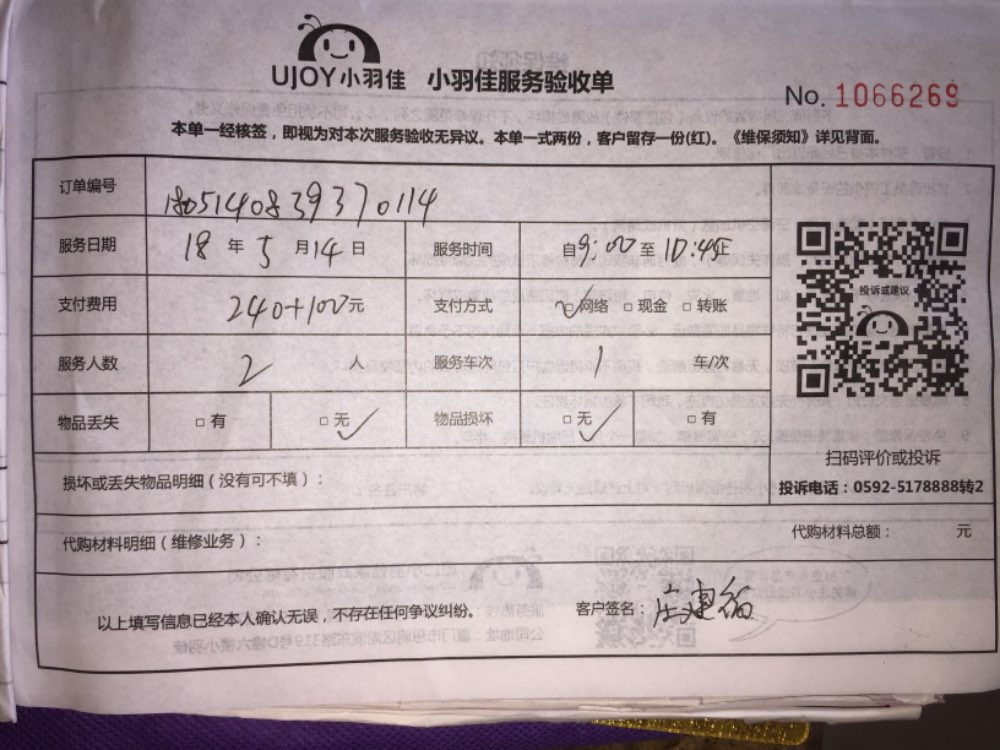 UJOY小羽佳 小羽佳服务验收单
No. 1066269
本单一经核签，即视为对本次服务验收无异议。本单一式两份，客户留存一份(红)。《维保须知》详见背面。
订单编号 1805140839370114
服务日期 18 年 5 月 14 日 服务时间 自9:00至10:45止
支付费用 240+100元 支付方式 ☑网络 □现金 □转账
服务人数 2 人 服务车次 1 车/次
物品丢失 □有 □无✓ 物品损坏 □无✓ □有
投诉或建议
扫码评价或投诉
投诉电话：0592-5178888转2
损坏或丢失物品明细（没有可不填）：
代购材料明细（维修业务）： 代购材料总额： 元
以上填写信息已经本人确认无误，不存在任何争议纠纷。 客户签名：